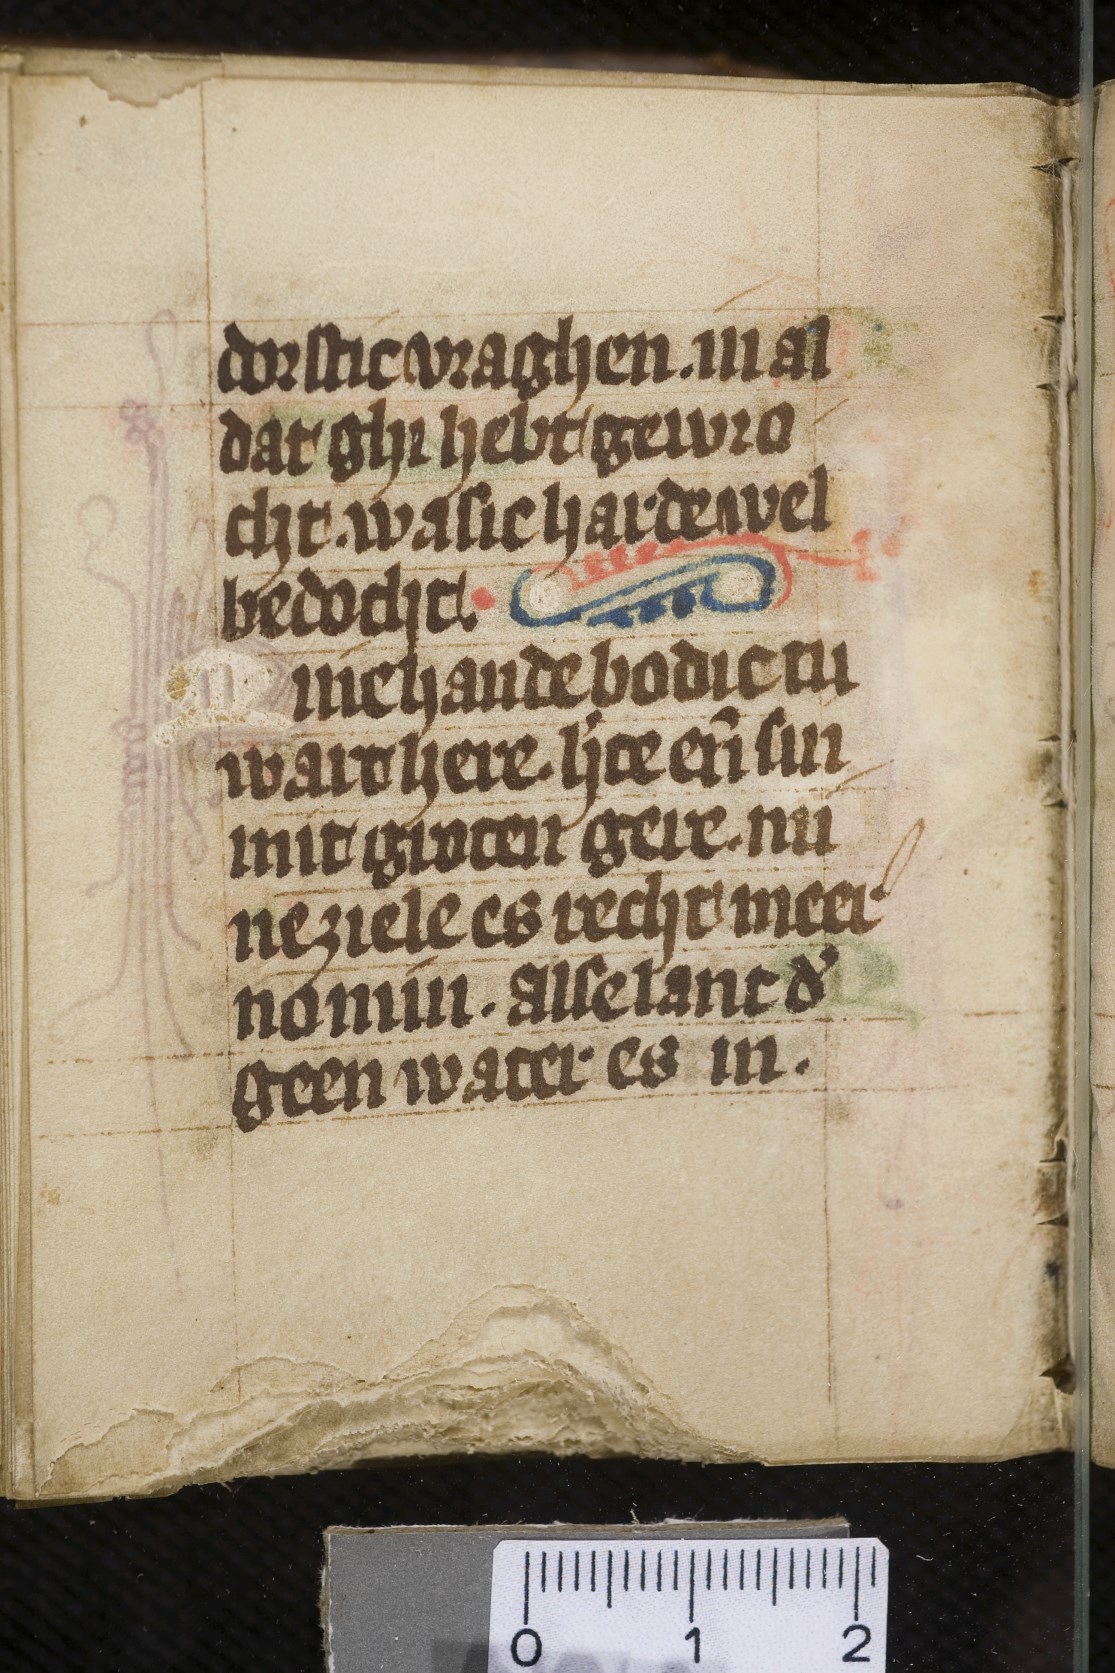 dorstic vraghen. in al
dat ghi hebt gewro
cht. was ic harde wel
bedocht.
Mine hande bodic tu
wart here. hcte en̄ fijn
mit groten gere. mi
ne ziele es recht meer
no min. Alse lant d'
geen water es in.
0 1 2